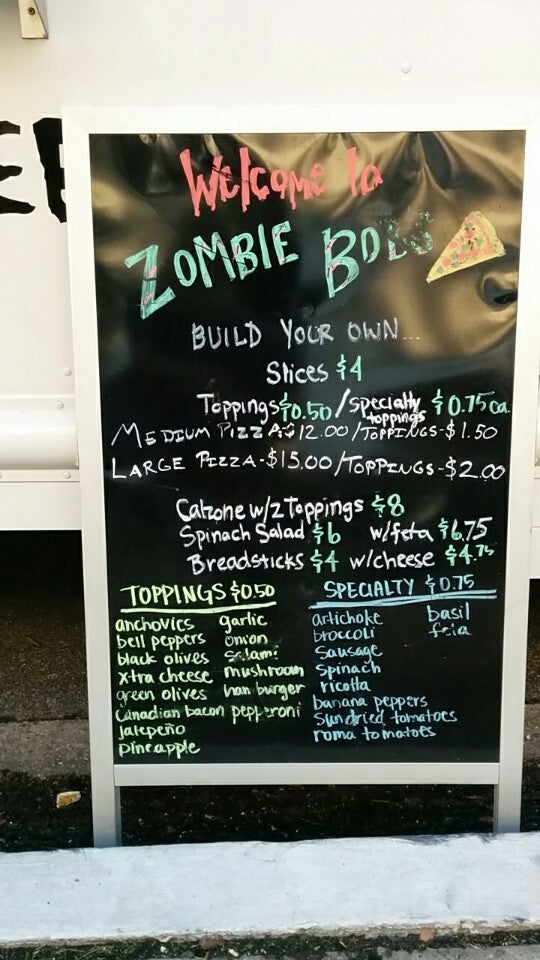 Welcome to
ZOMBIE BOBS
BUILD YOUR OWN...
Slices $4
Toppings $0.50 / specialty toppings $0.75 ea.
MEDIUM PIZZA-$12.00/TOPPINGS-$1.50
LARGE PIZZA-$15.00/TOPPINGS-$2.00
Calzone w/2 Toppings $8
Spinach Salad $6 w/feta $6.75
Breadsticks $4 w/cheese $4.75
TOPPINGS $0.50
anchovies garlic
bell peppers onion
black olives salami
xtra cheese mushroom
green olives hamburger
Canadian bacon pepperoni
jalepeño
pineapple
SPECIALTY $0.75
artichoke basil
broccoli feta
sausage
spinach
ricotta
banana peppers
sundried tomatoes
roma tomatoes